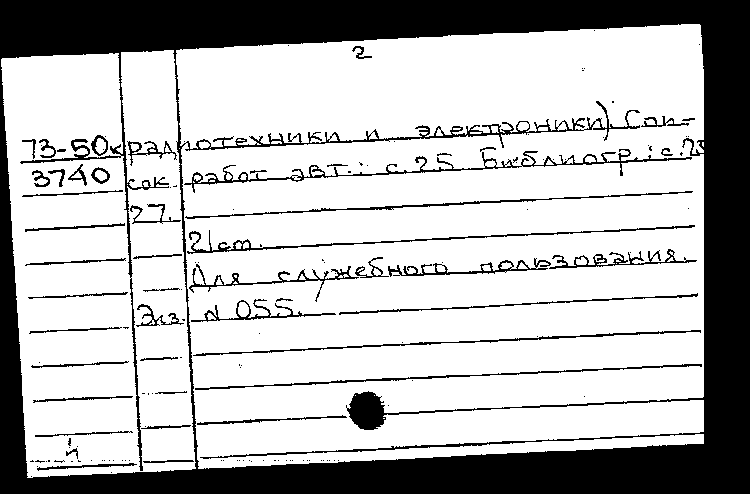 2
73-50к радиотехники и электроники). Спи-
3740 сок работ авт.: с.25 Библиогр.: с.25
27.
21 ст.
Для служебного пользования.
Экз. N 055.